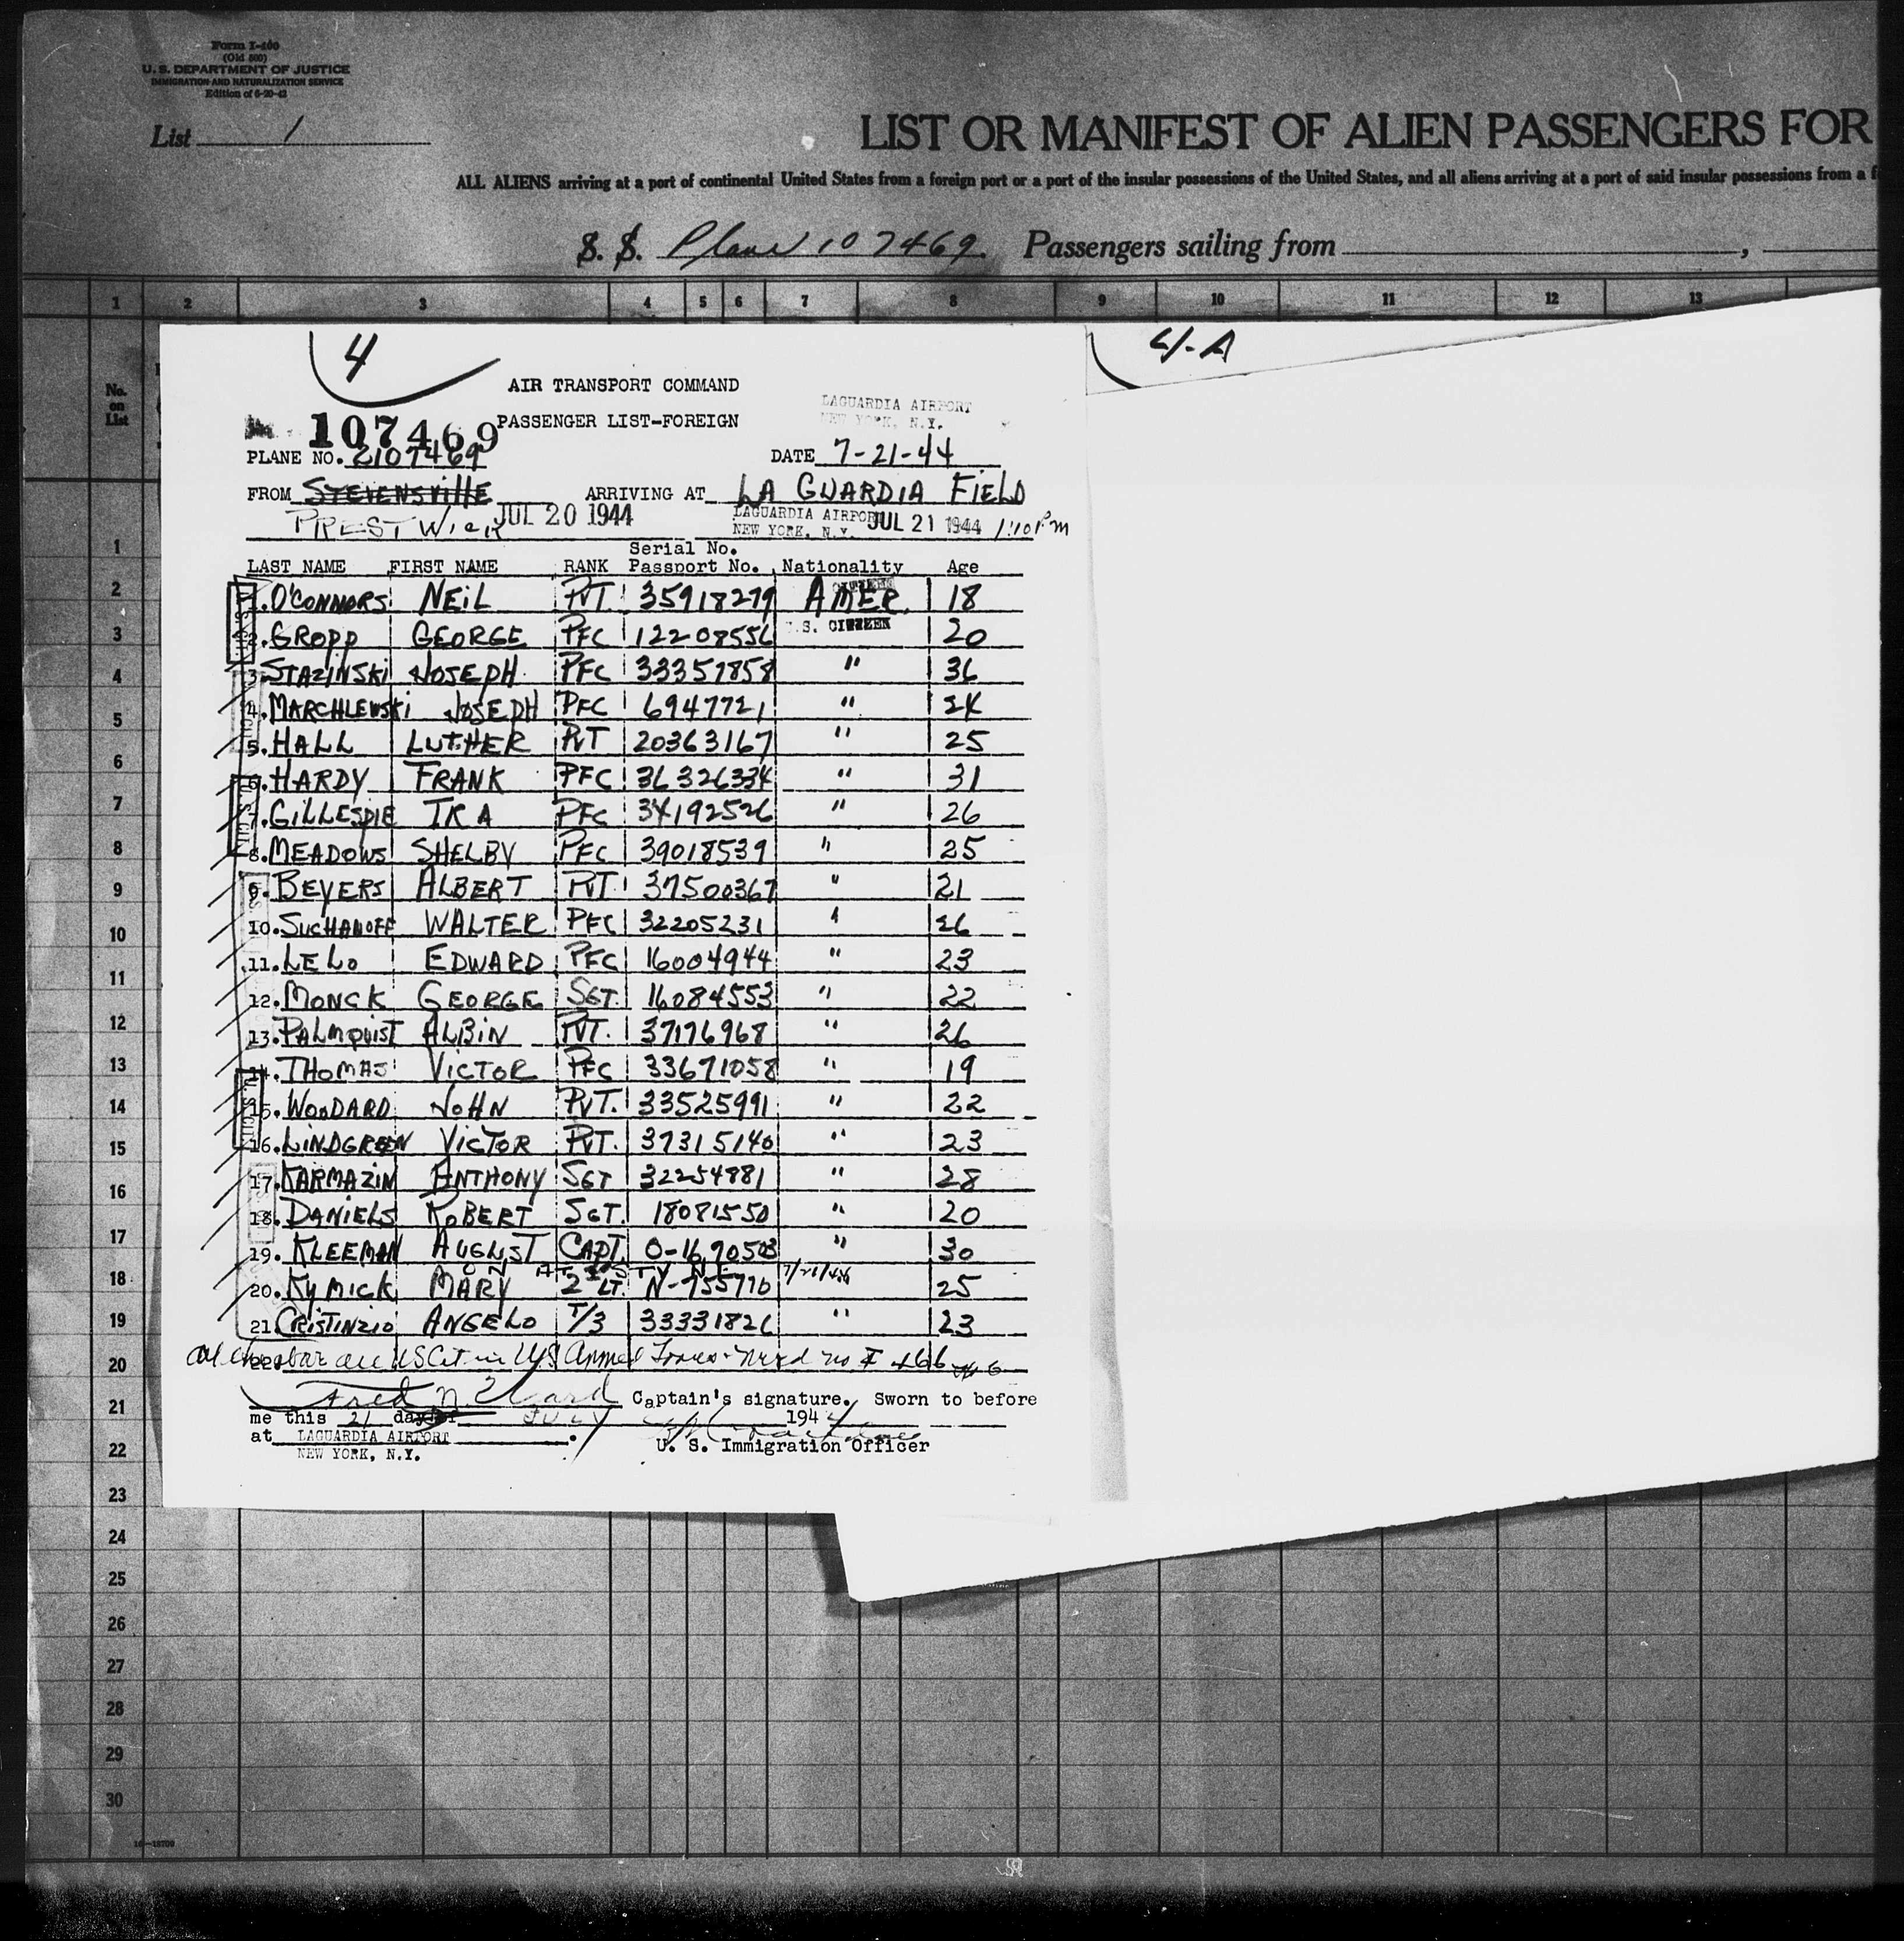 Form I-400
(Old 500)
U. S. DEPARTMENT OF JUSTICE
IMMIGRATION AND NATURALIZATION SERVICE
Edition of 6-20-43
List 1
LIST OR MANIFEST OF ALIEN PASSENGERS FOR
ALL ALIENS arriving at a port of continental United States from a foreign port or a port of the insular possessions of the United States, and all aliens arriving at a port of said insular possessions from a f
S. S. Plane 107469. Passengers sailing from ,
1 2 3 4 5 6 7 8 9 10 11 12 13
No. on List
4
4-A
AIR TRANSPORT COMMAND
LAGUARDIA AIRPORT
NEW YORK, N.Y.
107469 PASSENGER LIST-FOREIGN
PLANE NO. 2107469 DATE 7-21-44
FROM STEVENSVILLE ARRIVING AT LA GUARDIA FIELD
PRESTWICK JUL 20 1944 LAGUARDIA AIRPORT NEW YORK, N.Y. JUL 21 1944 1:10 PM
Serial No.
LAST NAME FIRST NAME RANK Passport No. Nationality Age
1. O'CONNORS NEIL PVT. 35918279 AMER. 18
2. GROPP GEORGE PFC 12208556 U.S. CITIZEN 20
3. STAZINSKI JOSEPH PFC 33357858 " 36
4. MARCHLEWSKI JOSEPH PFC 6947721 " 24
5. HALL LUTHER PVT 20363167 " 25
6. HARDY FRANK PFC 36326334 " 31
7. GILLESPIE IRA PFC 34192526 " 26
8. MEADOWS SHELBY PFC 39018539 " 25
9. BEYERS ALBERT PVT. 37500367 " 21
10. SUCHANOFF WALTER PFC 32205231 " 26
11. LELO EDWARD PFC 16004944 " 23
12. MONCK GEORGE SGT. 16084553 " 22
13. PALMQUIST ALBIN PVT. 37176968 " 26
14. THOMAS VICTOR PFC 33671058 " 19
15. WOODARD JOHN PVT. 33525991 " 22
16. LINDGREEN VICTOR PVT. 37315140 " 23
17. KARMAZIN ANTHONY SGT 32254881 " 28
18. DANIELS ROBERT SGT. 18081550 " 20
19. KLEEMAN AUGUST CAPT. O-1690503 " 30
20. KYMICK MARY 2nd LT. N-755770 7/21/44 25
21. CRISTINZIO ANGELO T/3 33331826 " 23
22. All are US Cit in US Armed Forces
Captain's signature. Sworn to before
me this 21 day of JULY 1944
at LAGUARDIA AIRPORT
NEW YORK, N.Y.
U. S. Immigration Officer
1
2
3
4
5
6
7
8
9
10
11
12
13
14
15
16
17
18
19
20
21
22
23
24
25
26
27
28
29
30
16—18709